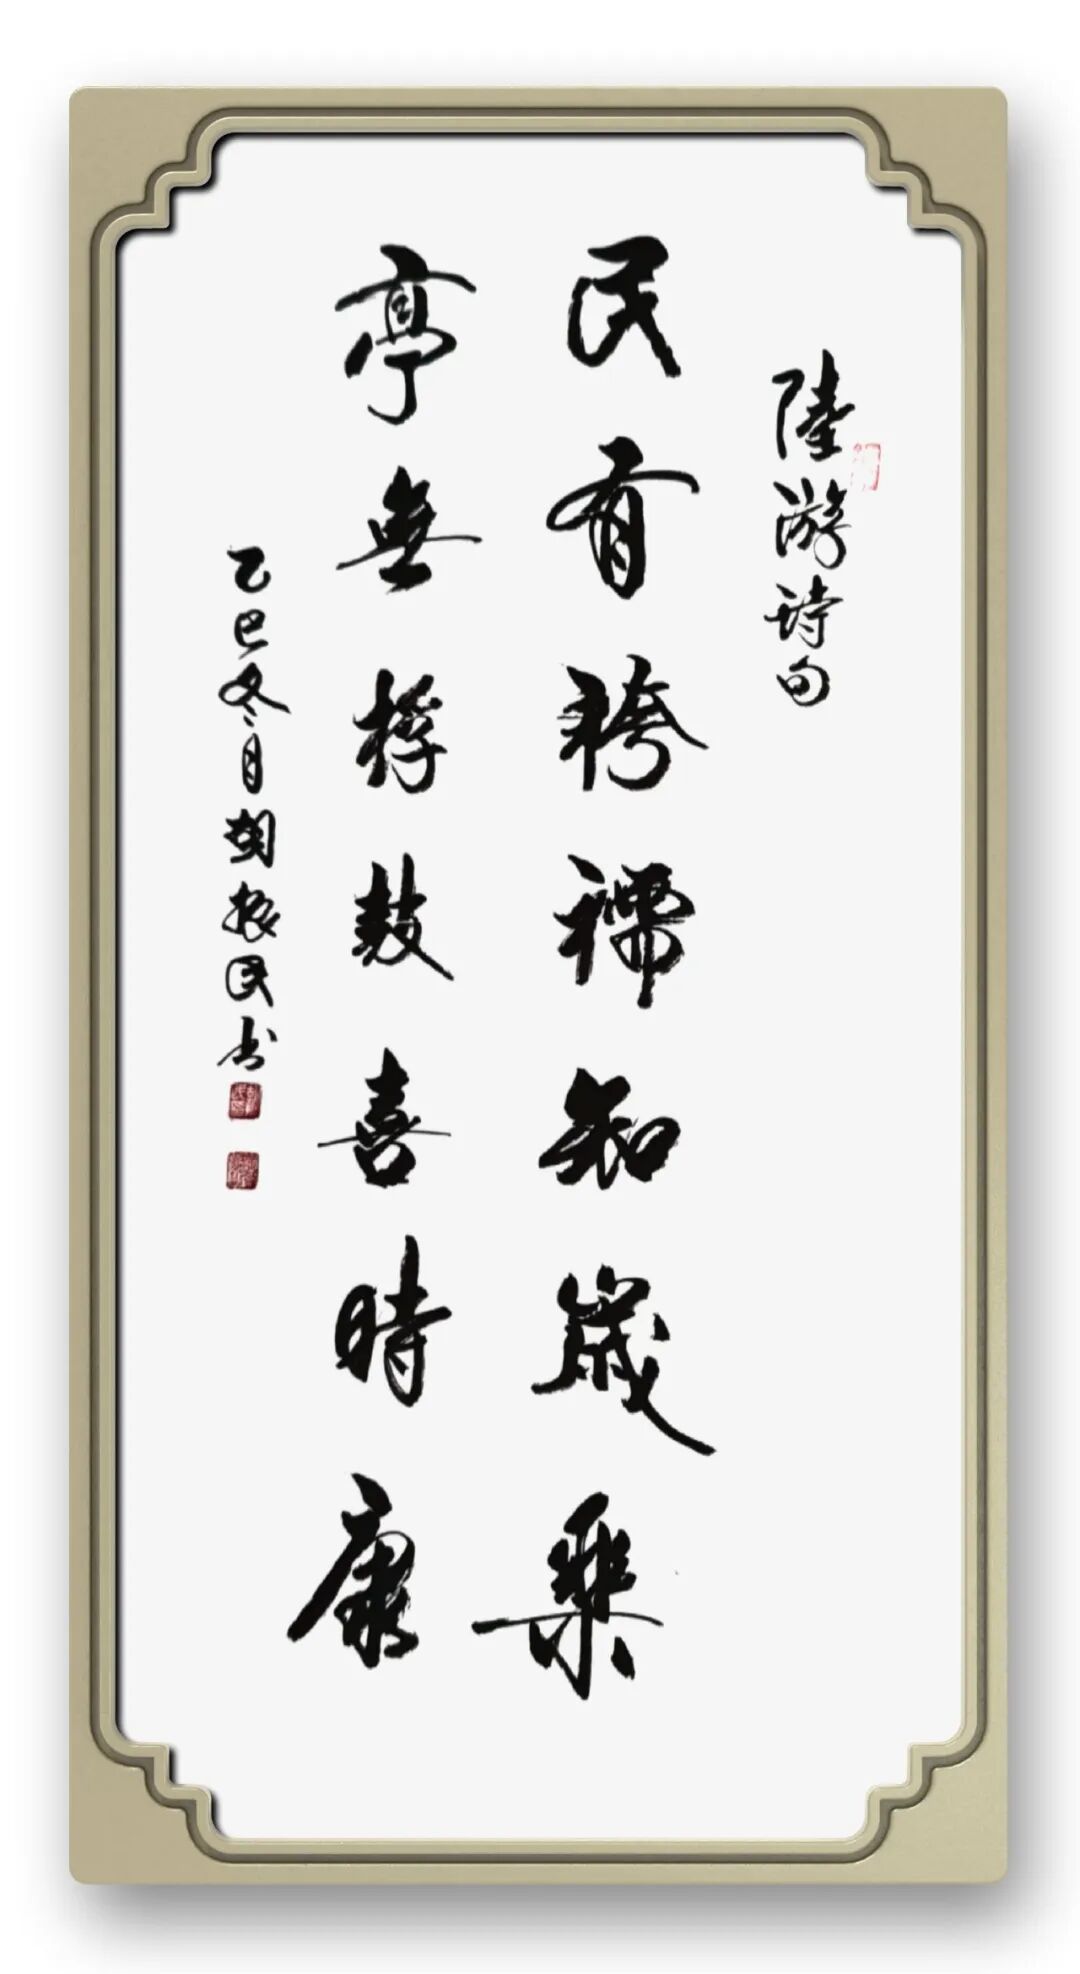 陸游诗句
民有袴襦知歲樂
亭無桴鼓喜時康
乙巳冬月胡振民书